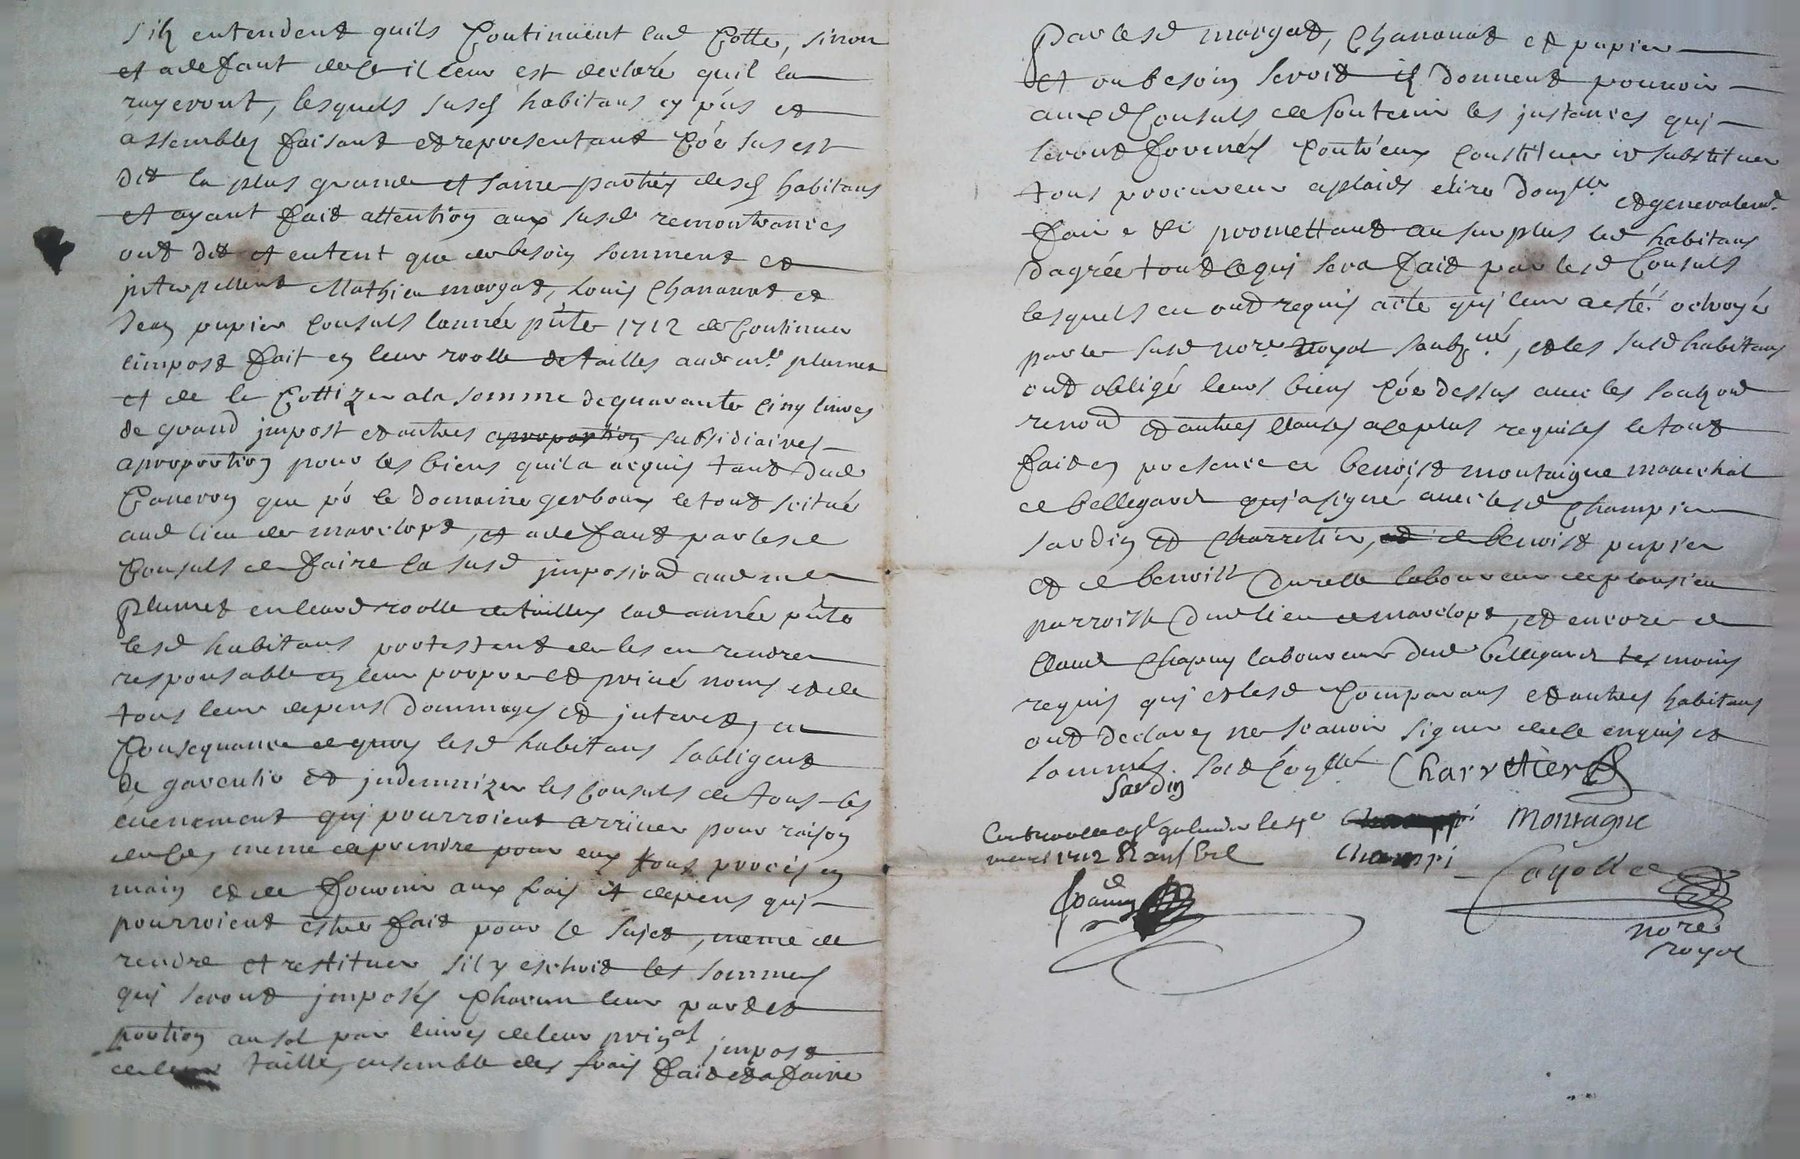 silz entendent quils Continuent lad Cotte, sinon
et a deffaut dece il leur est declaré quil la
rayeront, lesquels susd habitans cy pñs et
assemblez faisant et representant Cõe sus est
dit la plus grande et saine parties desd habitans
et ayant fait attention aux susd remontrances
ont dit et entent que de besoin somment et
jnterpellent Mathieu morgat, Louis Chananat et
Jean pupier Consuls lannée pñte 1712 de Continuer
limpost fait en leur roolle de tailles aud mr plumet
et de le Cottizer a la somme de quarante Cinq livres
de grand jmpost et autres aproportion subsidiaires
aproportion pour les biens quil a acquis tant dud
que pr le domaine gerboux le tout scitué
aud lieu de marclopt, et a deffaut par lesd
Consuls de faire la susd jmposiõn aud mr
plumet en leurd roolle de tailles lad année pñte
lesd habitans protestent de les en rendre
responsable en leur propre et privé noms et de
tous leur depens dommages et jnterets, en
Consequance de quoy lesd habitans sobligent
de garentir et jndemnizer les Consuls de tous les
evenement qui pourroient arriver pour raison
de ce, meme de prendre pour eux tous procès en
main et de fournir aux frais et depens qui
pourroient estre fait pour le sujet, meme de
rendre et restituer sil y eschoit les sommes
qui seront jmposés Chacun leur part et
portion au sol par livres de leur prinal jmpost
de leur taille, ensemble des frais fait et a faire
par lesd morgat, Chananat et pupier
et ou besoin seroit ilz donnent pouvoir
auxd Consuls de soutenir les jnstances qui
seront formés Contr'eux Constituer et substituer
tous procureur a plaids elire domlle et generalemt
faire et promettant au surplus lesd habitans
dagréer tout ce qui sera fait par lesd Consuls
lesquels en ont requis acte qui leur a esté octroyé
par le susd nore royal soubzné, et les susd habitans
ont obligé leurs biens Cõe dessus avec les soubzons
renond et autres clauses a ce plus requises le tout
fait en presence de benoist montaigne marechal
de bellegarde qui a signé avec lesd Champier
sardin et Charretier, et de benoist pupier
et de benoist durelle laboureur de plansieu
parroisse dud lieu de marclopt, et encore de
Claude Chapuy laboureur dud bellegarde tesmoins
requis qui et lesd Comparans et autres habitans
ont declarez ne scavoir signer de ce enquis et
sommés sord Coyllé Charretier
Sardin
Controolle a st galmier le
mars 1712 Champi Montagne
Champi
Cayolle
nore
royal